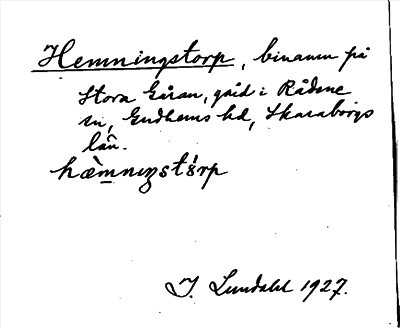 Hemningstorp, binamn på
Stora Gåran, gård i Rådene
sn, Gudhems hd, Skaraborgs
län.
hæ̀mnɩŋstɵ́rp
I. Lundahl 1927.